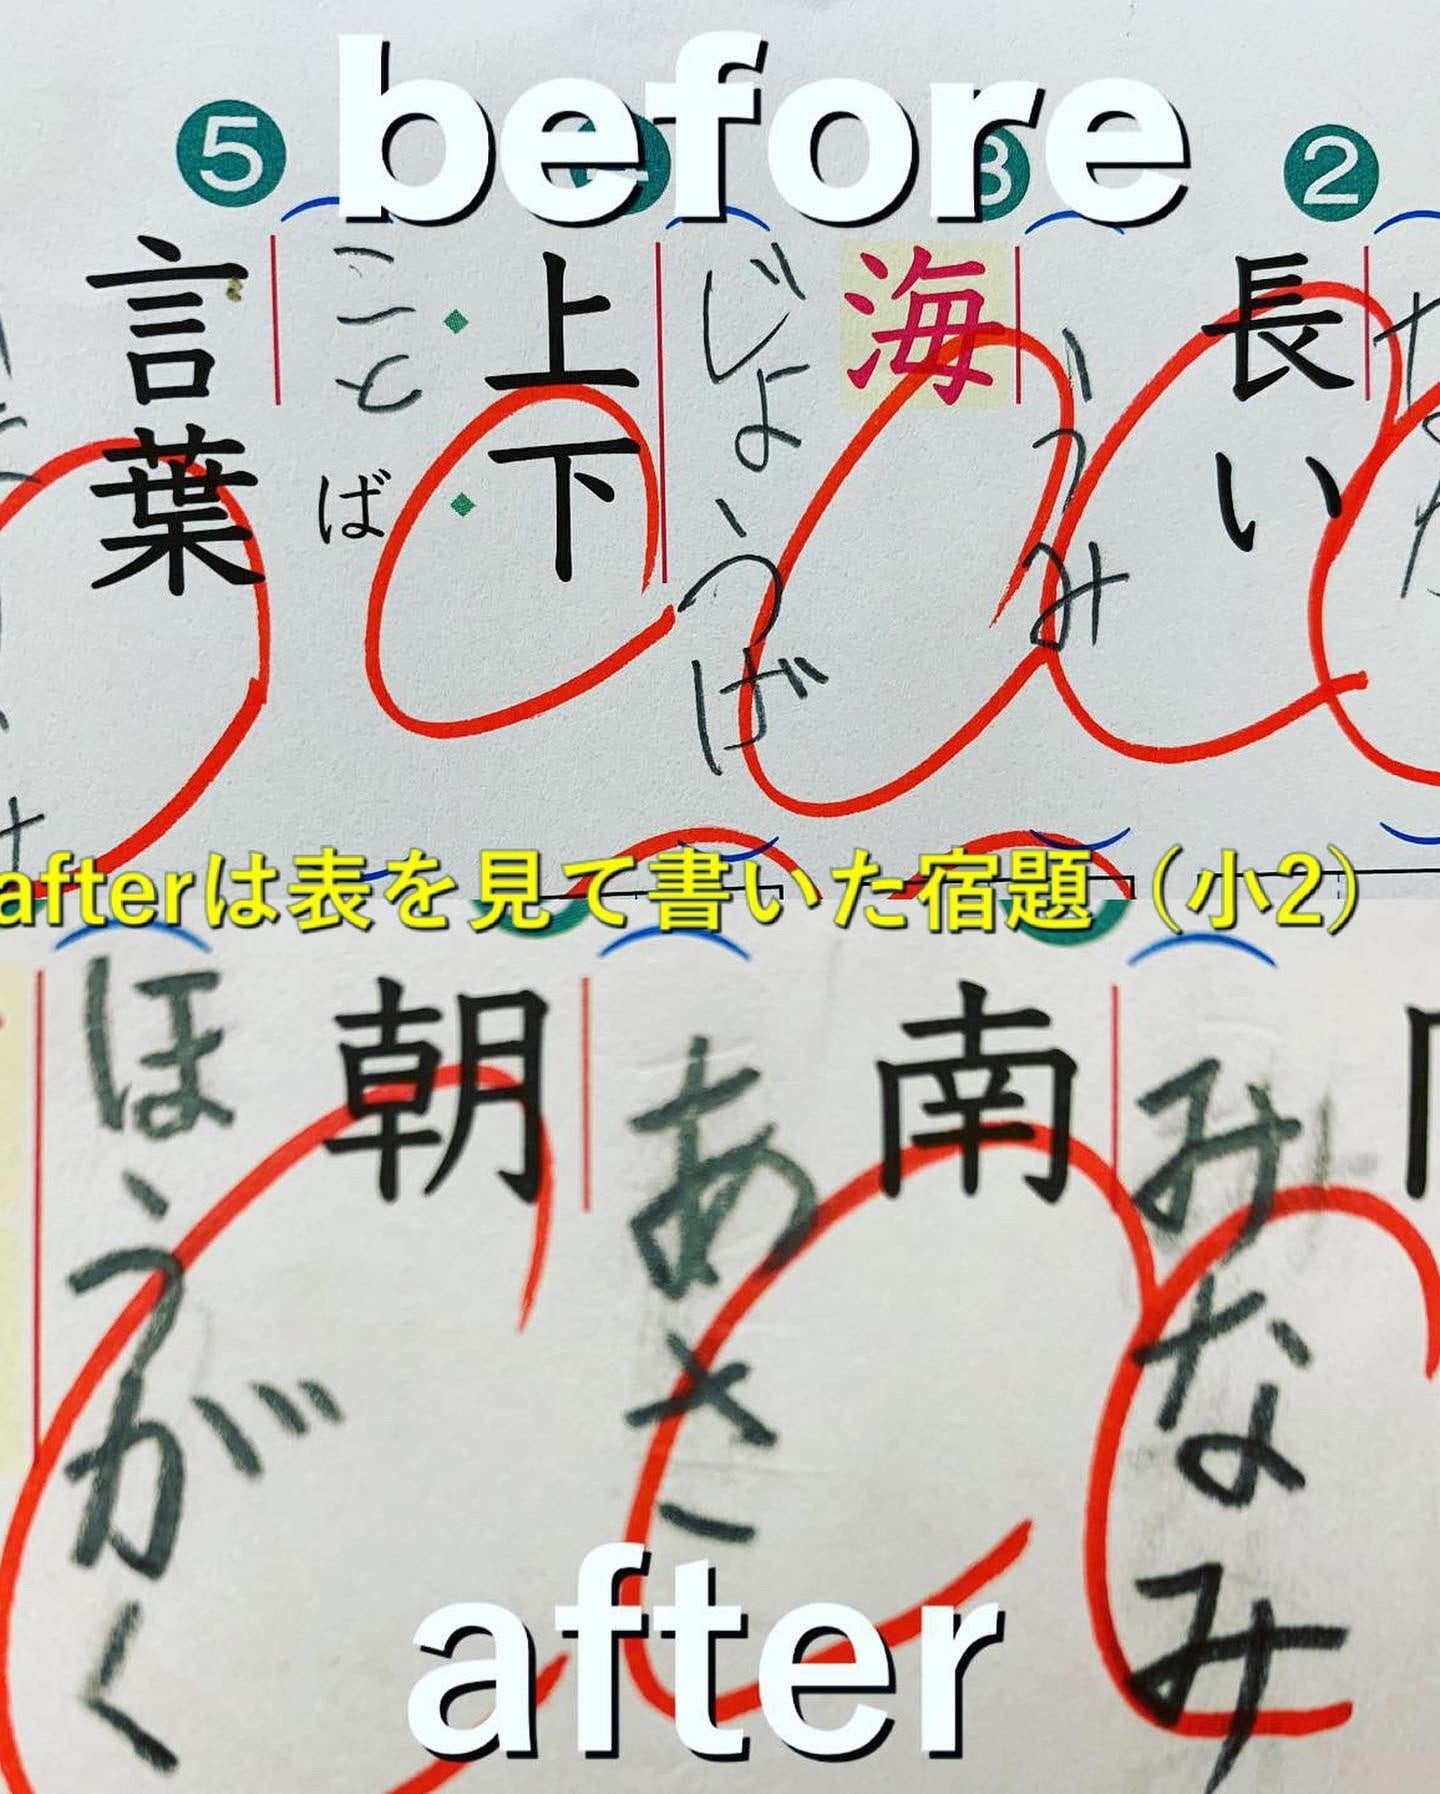 before
2
長い
3
うみ
海
じょうげ
上下
5
こと
ば
言葉
afterは表を見て書いた宿題（小2）
みなみ
南
あさ
朝
ほうがく
after